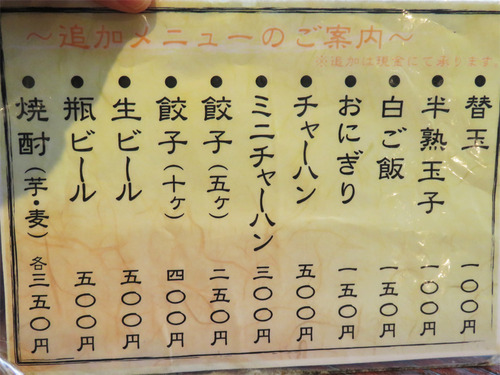 ～追加メニューのご案内～
※追加は現金にて承ります。
●替玉 一〇〇円
●半熟玉子 一〇〇円
●白ご飯 一五〇円
●おにぎり 一五〇円
●チャーハン 五〇〇円
●ミニチャーハン 三〇〇円
●餃子（五ヶ） 二五〇円
●餃子（十ヶ） 四〇〇円
●生ビール 五〇〇円
●瓶ビール 五〇〇円
●焼酎（芋・麦） 各三五〇円